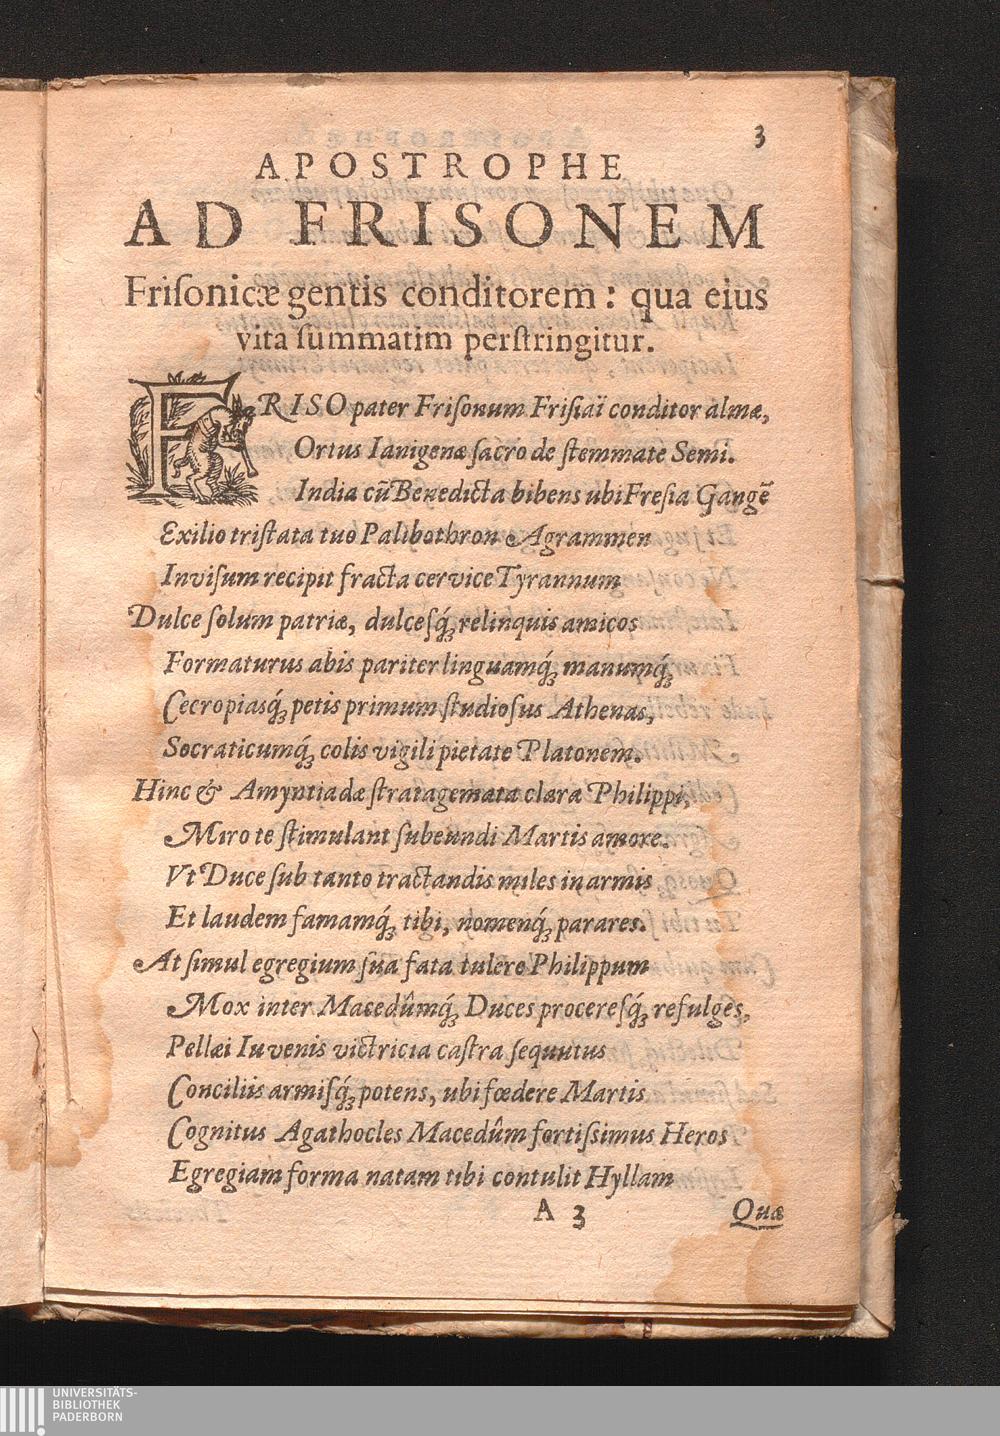 3
APOSTROPHE
AD FRISONEM
Friſonicæ gentis conditorem: qua eius
vita ſummatim perſtringitur.
FRISO pater Friſonum Friſiaï conditor almæ,
Ortus Ianigenæ ſacro de ſtemmate Semi.
India cũ Benedicta bibens ubi Freſia Gangẽ
Exilio triſtata tuo Palibothron Agrammen
Inviſum recipit fracta cervice Tyrannum
Dulce ſolum patriæ, dulceſq́ꝫ relinquis amicos
Formaturus abis pariter linguamq́ꝫ manumq́ꝫ
Cecropiasq́ꝫ petis primum ſtudioſus Athenas,
Socraticumq́ꝫ colis vigili pietate Platonem.
Hinc & Amyntiadæ ſtratagemata clara Philippi,
Miro te ſtimulant ſubeundi Martis amore.
Vt Duce ſub tanto tractandis miles in armis
Et laudem famamq́ꝫ tibi, nomenq́ꝫ parares.
At ſimul egregium ſua fata tulere Philippum
Mox inter Macedûmq́ꝫ Duces procereſq́ꝫ refulges,
Pellæi Iuvenis victricia caſtra ſequutus
Conciliis armiſq́ꝫ potens, ubi fœdere Martis
Cognitus Agathocles Macedûm fortiſsimus Heros
Egregiam forma natam tibi contulit Hyllam
A 3 Quæ
UNIVERSITÄTS-
BIBLIOTHEK
PADERBORN